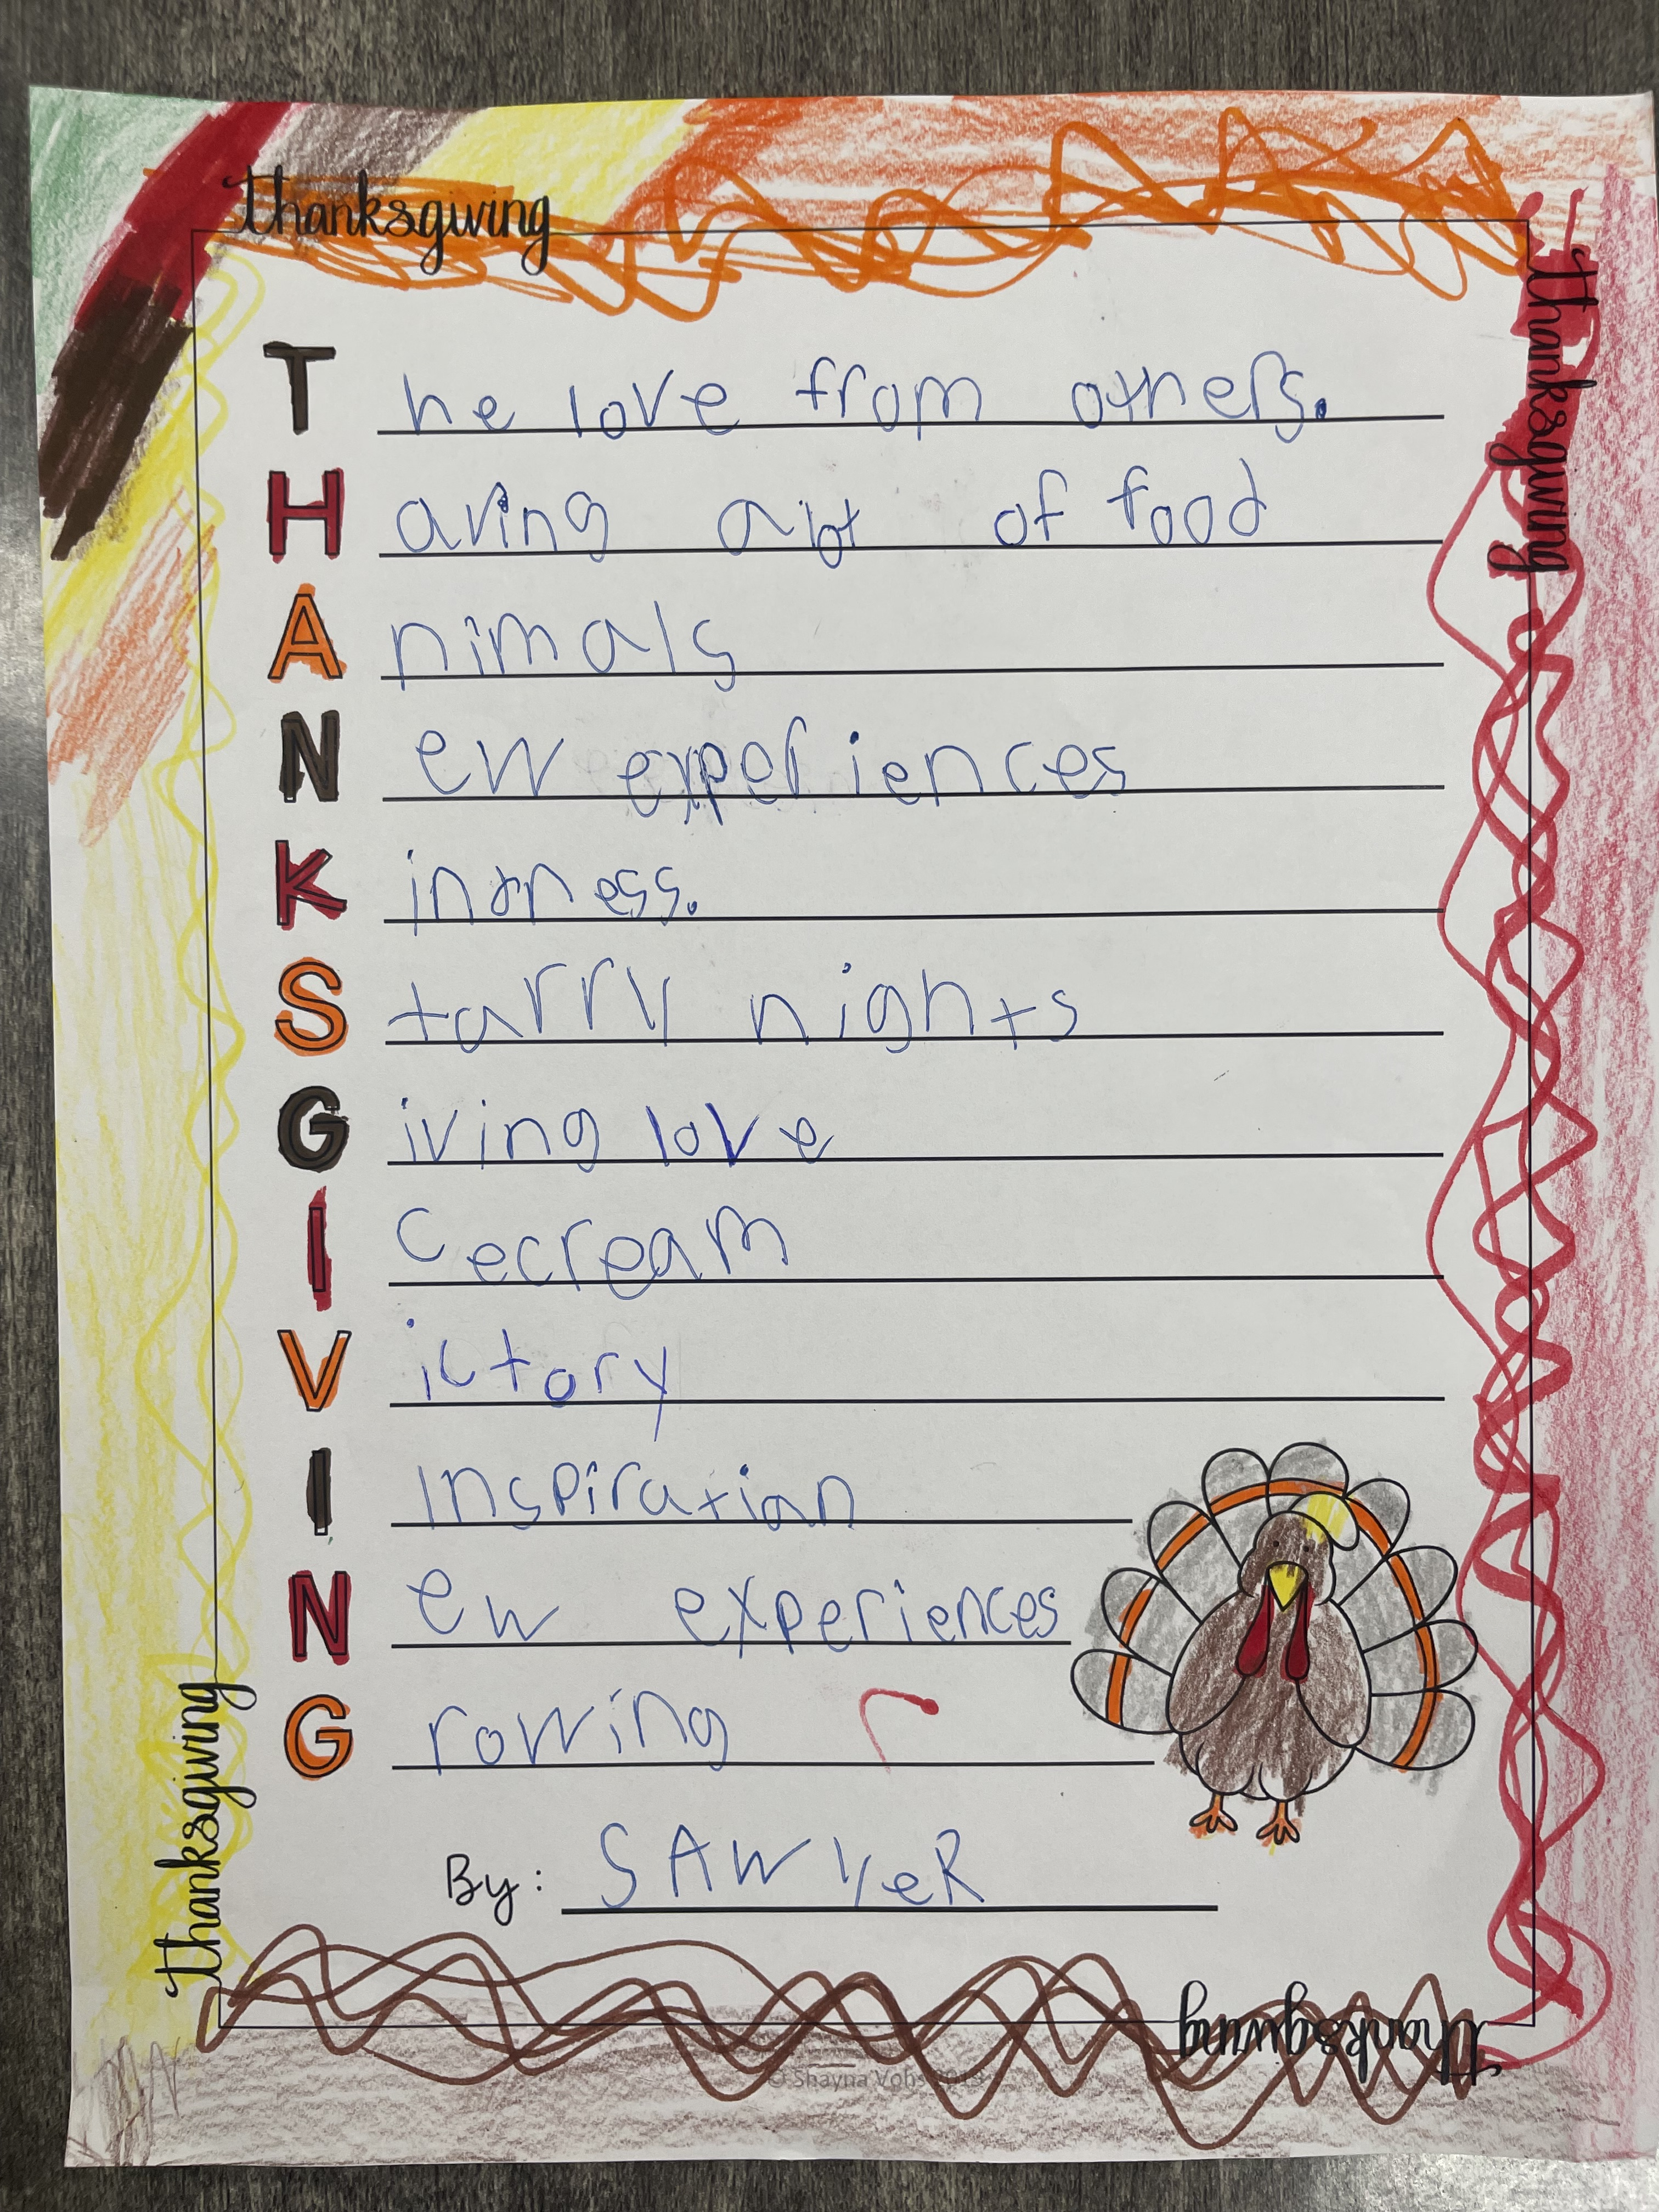 thanksgiving
thanksgiving
T he love from others.
H aving a lot of food
A nimals
N ew experiences
K indness.
S tarry nights
G iving love
I cecream
V ictory
I Inspiration
N ew experiences
G rowing
By: SAWyeR
thanksgiving
thanksgiving
© Shayna Vohs 2019